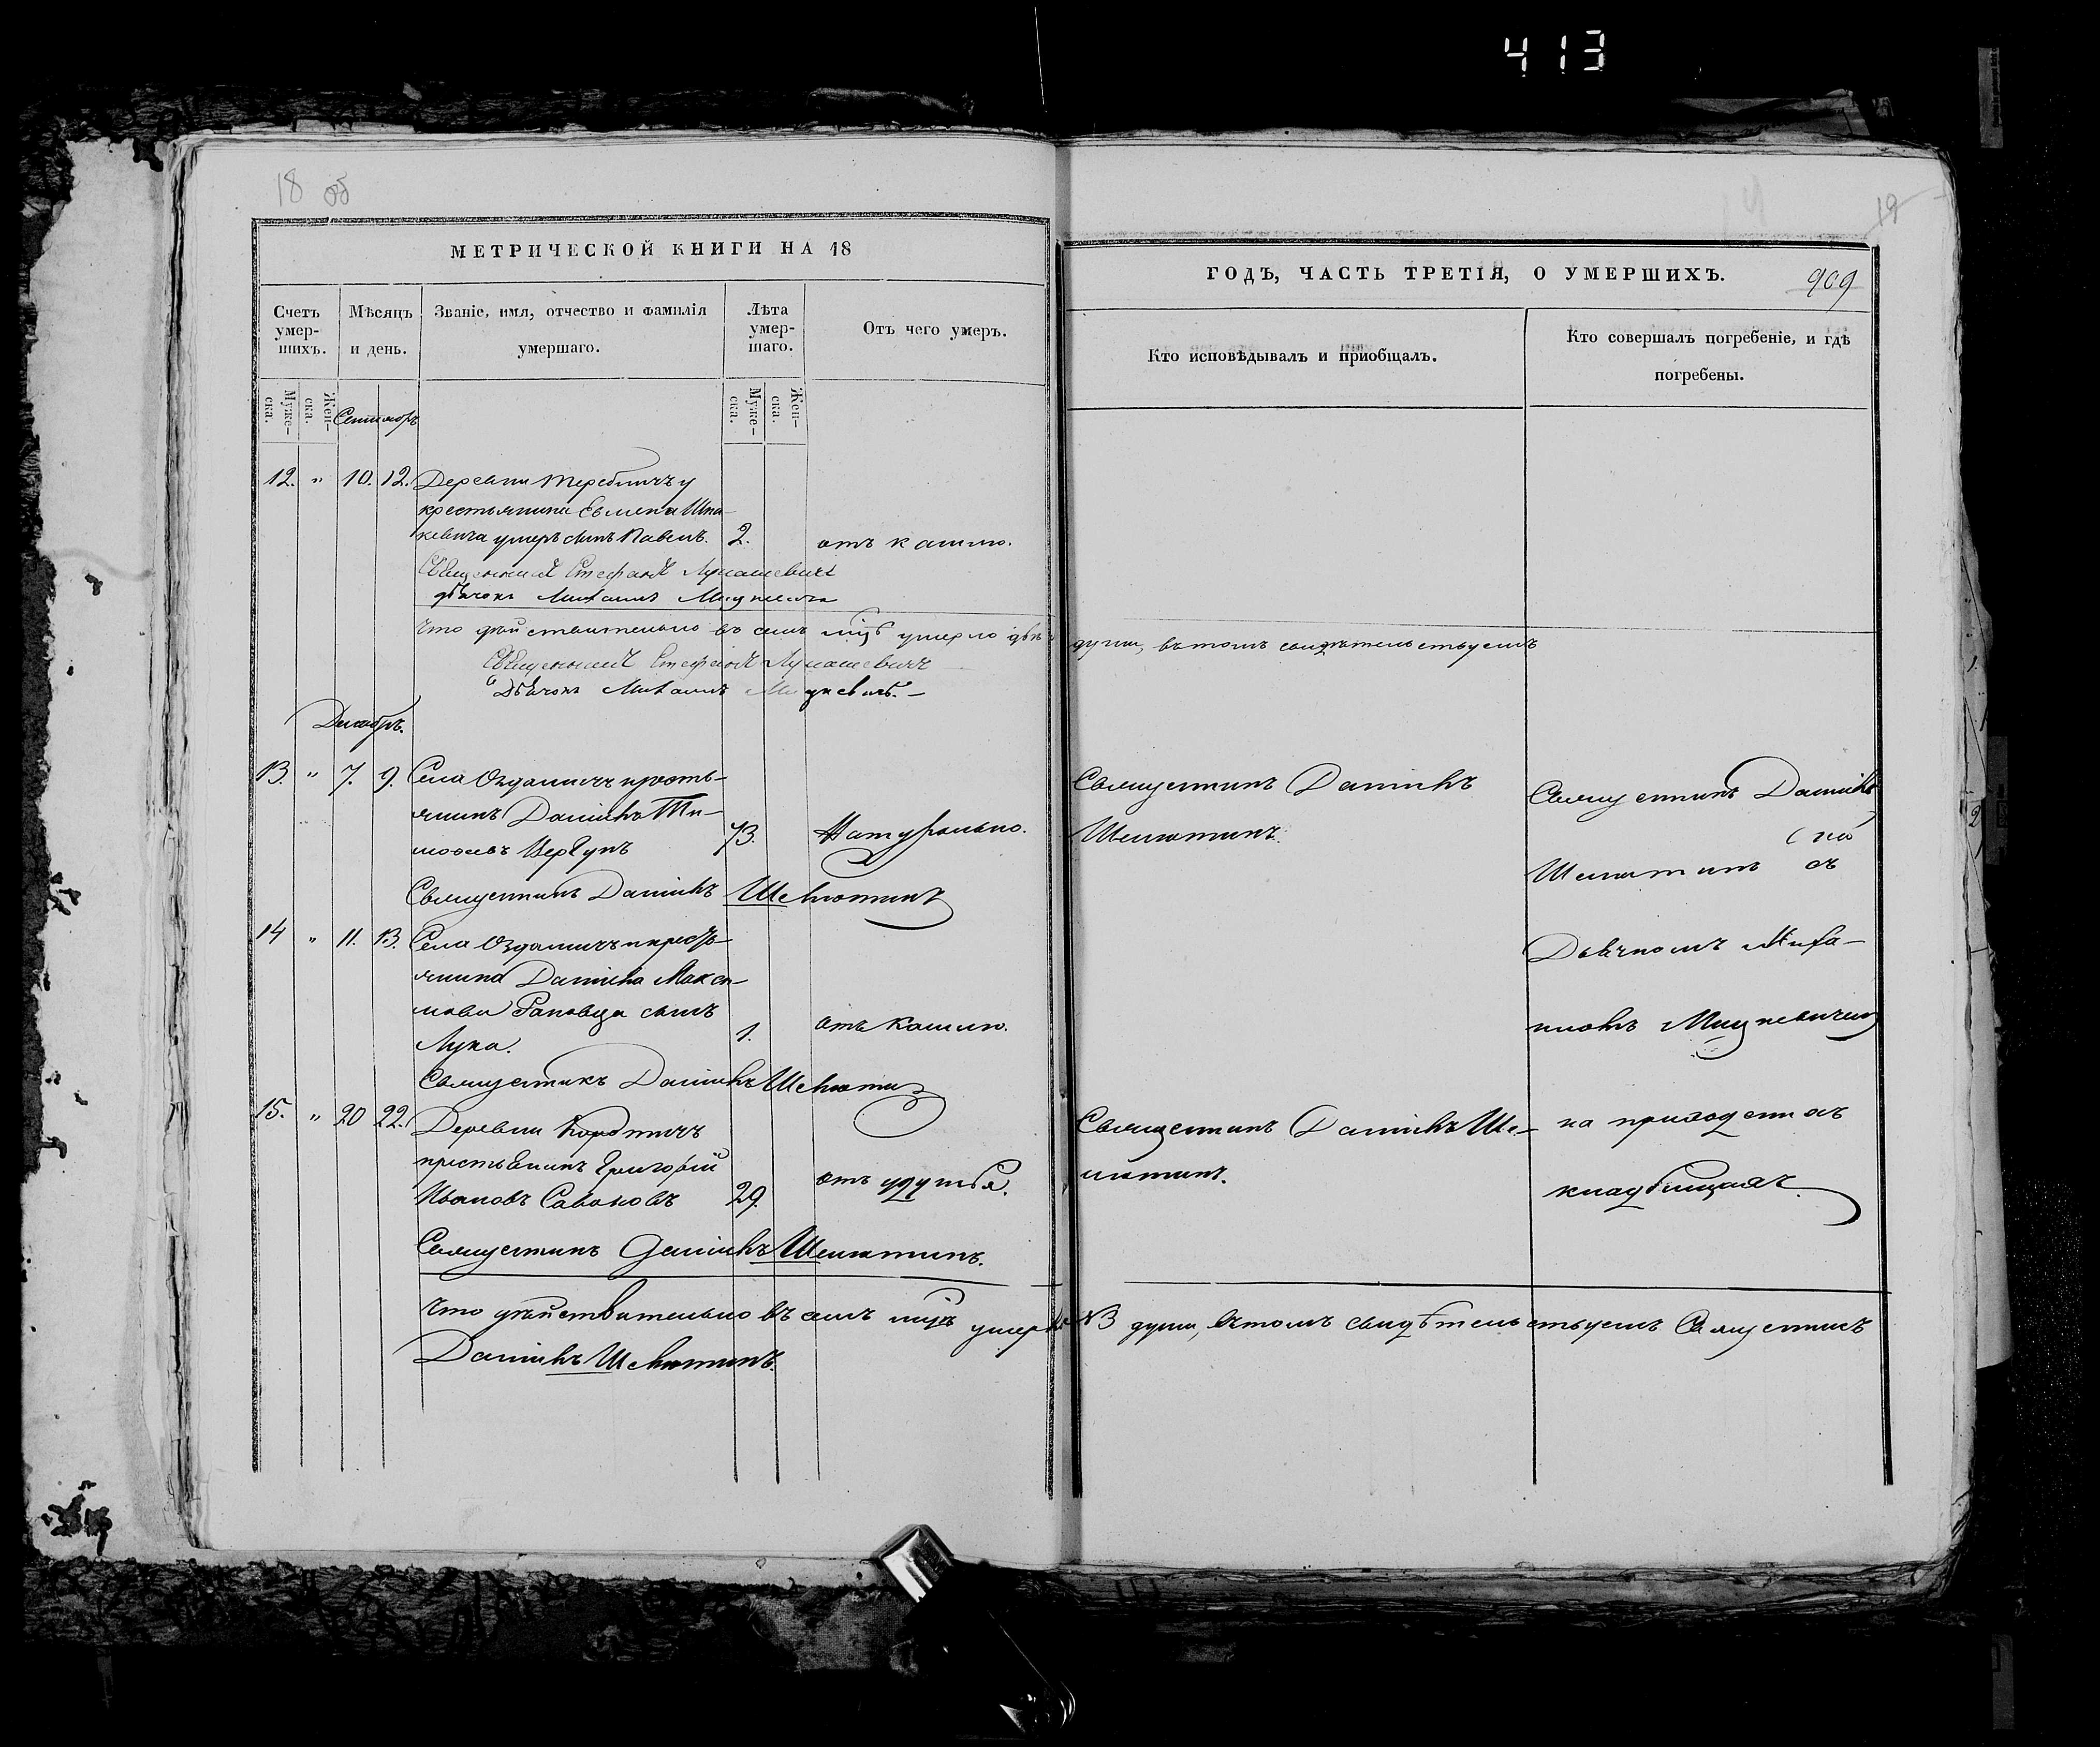 413
18 об
19
МЕТРИЧЕСКОЙ КНИГИ НА 18
ГОДЪ, ЧАСТЬ ТРЕТІЯ, О УМЕРШИХЪ.
909
Счетъ умер-
шихъ.
Мѣсяцъ
и день.
Званіе, имя, отчество и фамилія
умершаго.
Лѣта
умер-
шаго.
Отъ чего умеръ.
Кто исповѣдывалъ и приобщалъ.
Кто совершалъ погребеніе, и гдѣ
погребены.
Муже-
ска.
Жен-
ска.
Муже-
ска.
Жен-
ска.
12. " 10. 12. Деревни Теребличъ у
крестьянина
кевича умеръ сынъ Павелъ. 2. отъ кашлю.
Священникъ Стефанъ Лукашевичъ
дьячокъ Михаилъ Мицкевичъ
Что дѣйствительно въ семъ мцѣ умерло двѣ души, въ томъ свидѣтельствуемъ
Священникъ Стефанъ Лукашевичъ
Дьячокъ Михаилъ Мицкевичъ. —
Декабрь.
13. " 7. 9. Села Оздамичъ кресть-
янинъ Даніилъ Ти-
моѳеевъ Вергунъ 73. Натурально.
Священникъ Даніилъ Шелютинъ
Священникъ Даніилъ
Шелютинъ.
Священникъ Даніилъ
Шелютинъ съ
Дьячкомъ Миха-
иломъ Мицкевичемъ
на приходскихъ
кладбищахъ.
14 " 11. 13. Села Оздамичъ крестъ-
янина Даніила Макси-
мова сынъ
Лука. 1. отъ кашлю.
Священникъ Даніилъ Шелютинъ
15. " 20 22. Деревни
крестьянинъ Григорій
Ивановъ 29. отъ удушья.
Священникъ Даніилъ Ше-
лютинъ.
Священникъ Даніилъ Шелютинъ.
Что дѣйствительно въ семъ мцѣ умерло 3 души, въ томъ свидѣтельствуемъ Священникъ
Даніилъ Шелютинъ.